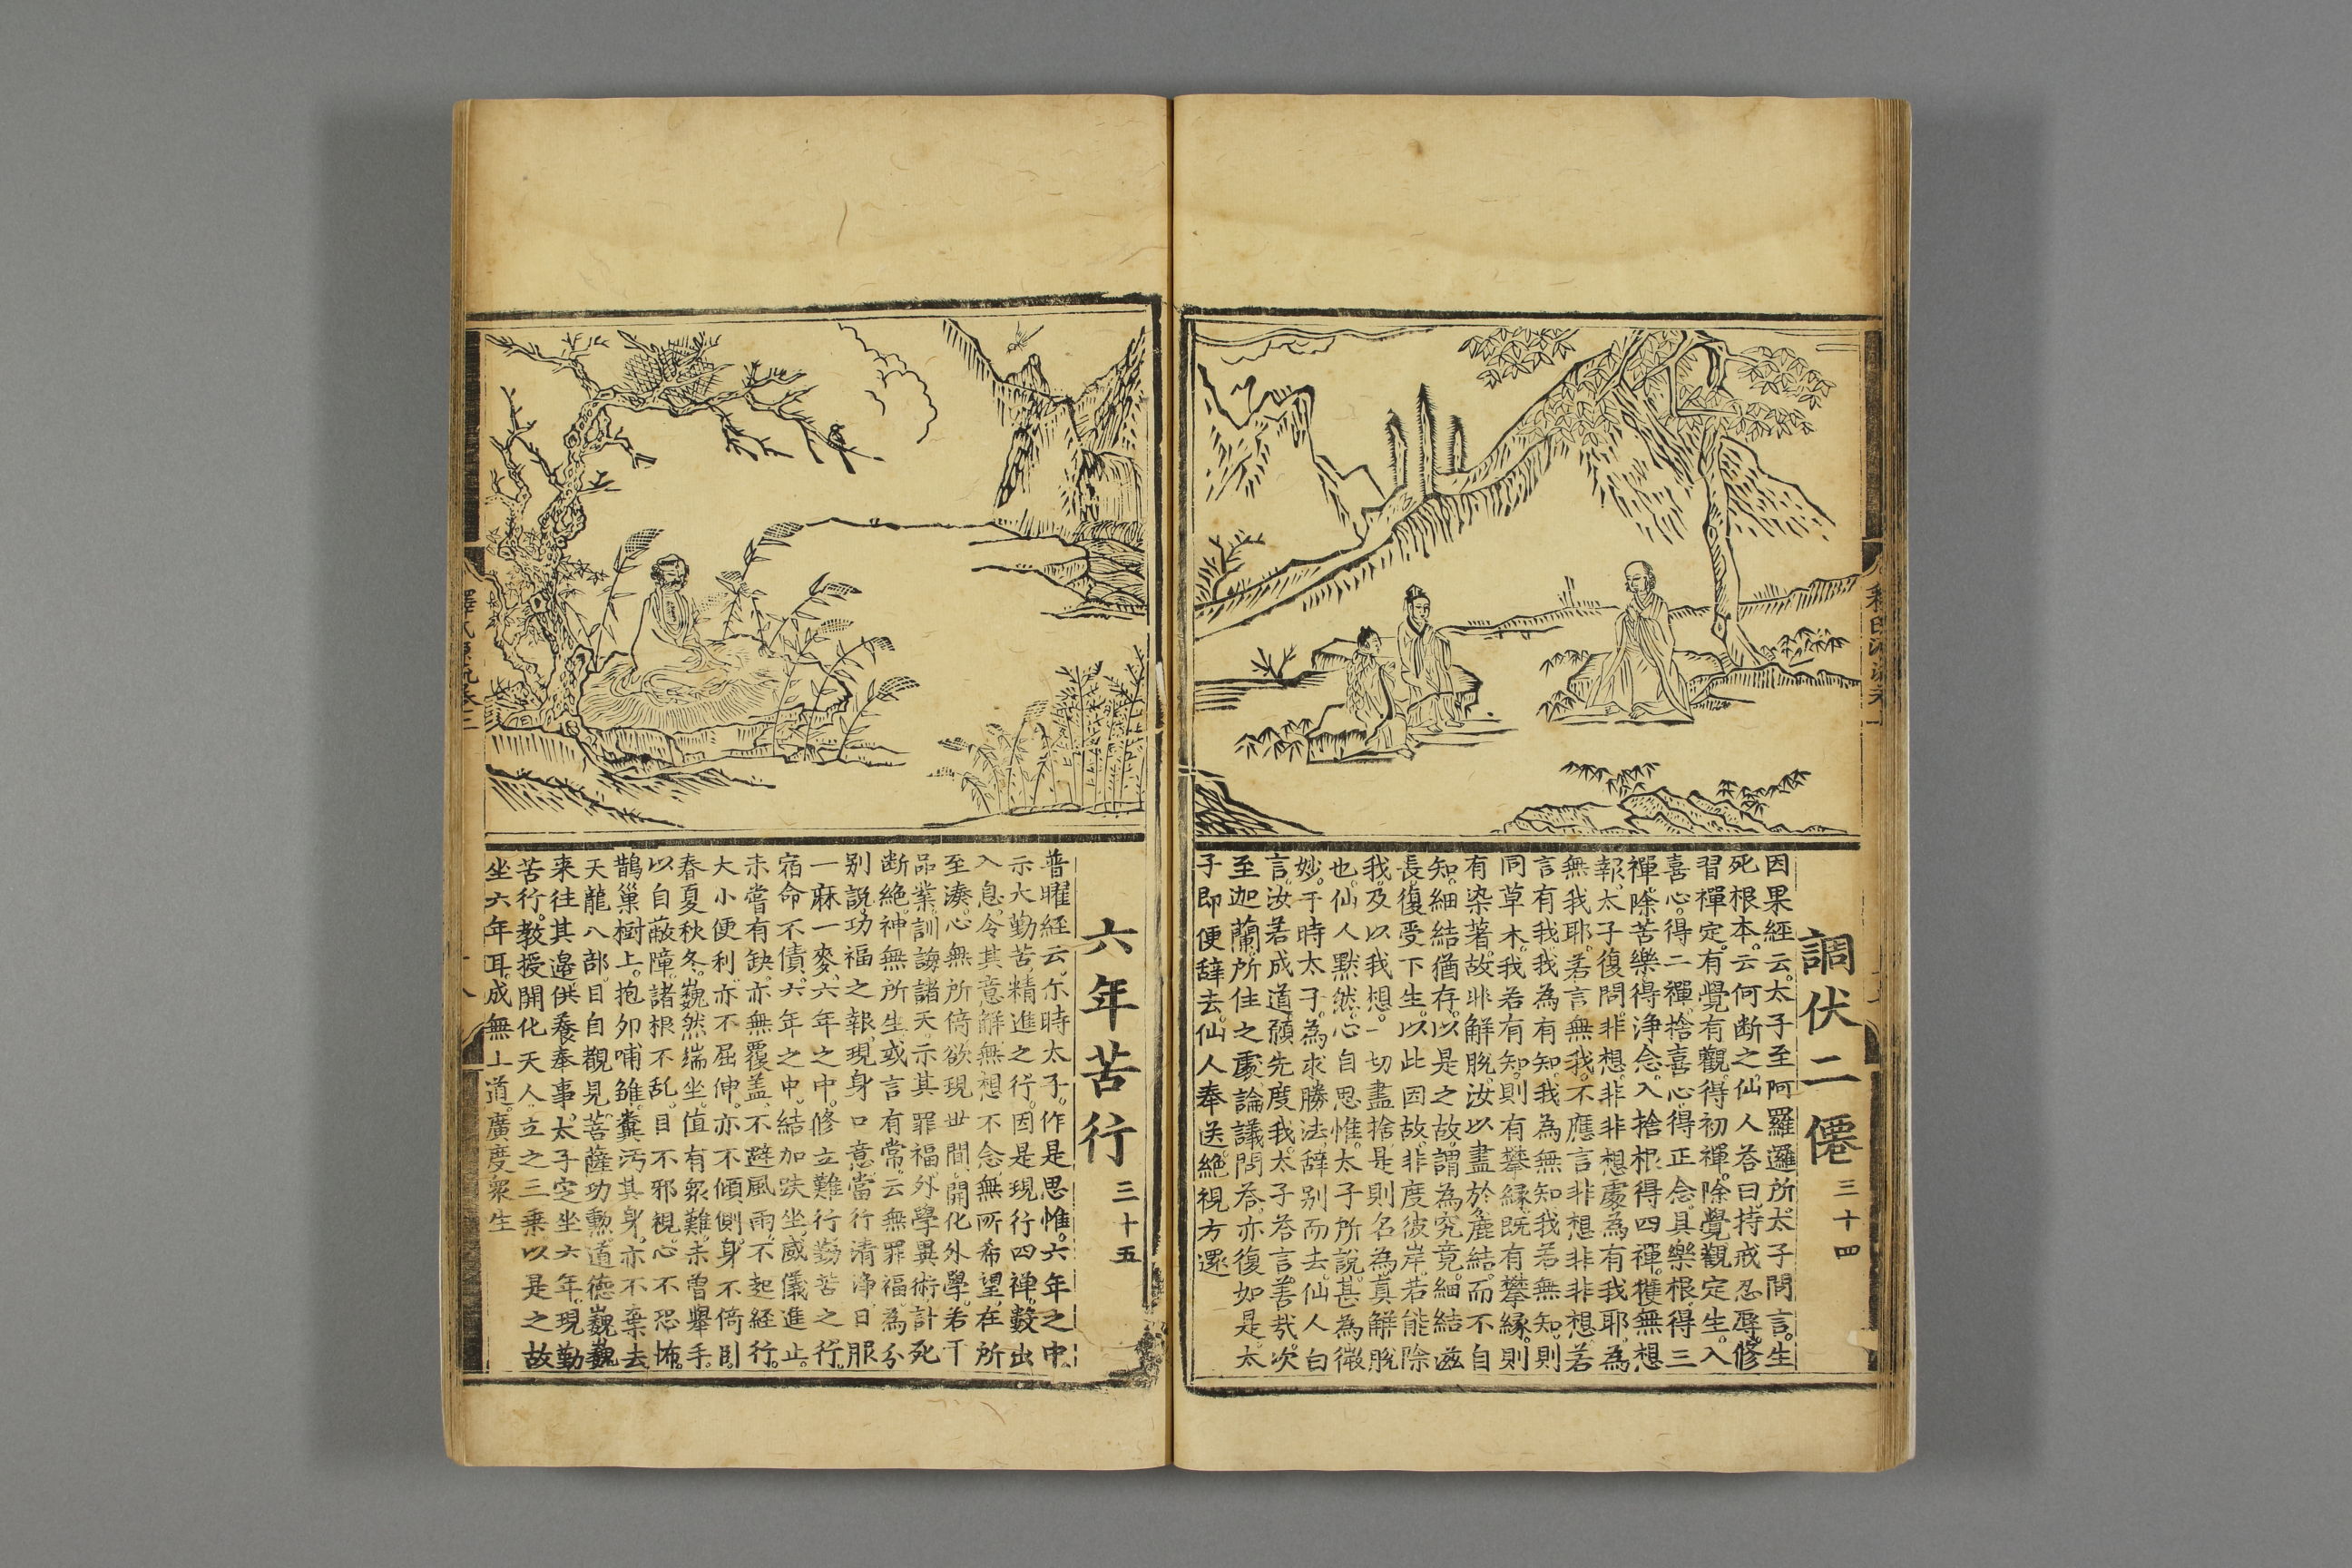 調伏二僊 三十四
因果經云。太子至阿羅邏所。太子問言。生
死根本。云何断之。仙人荅曰。持戒忍辱。修
習禪定。有覺有觀。得初禪。除覺觀定生。入
喜心。得二禪。捨喜心。得正念。具樂根。得三
禪。除苦樂。得浄念。入捨根。得四禪。獲無想
報。太子復問。非想。非非想處。為有我耶。為
無我耶。若言無我。不應言非想非非想。若
言有我。我為有知。我為無知。我若無知。則
同草木。我若有知。則有攀緣。既有攀緣。則
有染著。故非解脫。汝以盡於麁結。而不自
知。細結猶存。以是之故。謂為究竟。細結滋
長。復受下生。以此因故。非度彼岸。若能除
我。及以我想。一切盡捨。是則名為。真解脫
也。仙人默然。心自思惟。太子所說。甚為微
妙。于時太子。為求勝法。辞别而去。仙人白
言。汝若成道。願先度我。太子荅言。善㢤。次
至迦蘭。所住之處。論議問荅。亦復如是。太
子即便辞去。仙人奉送。絶視方還
六年苦行 三十五
普曜經云。尔時太子。作是思惟。六年之中。
示大勤苦。精進之行。因是現行四禅。數出
入息。令其意解。無想不念。無所希望。在所
至湊。心無所倚。欲現世間。開化外學。若干
品業。訓誨諸天。示其罪福。外學異術。計死
断絶。神無所生。或言有常。云無罪福。為分
别說。功福之報。現身口意。當行清浄。日服
一麻一麥。六年之中。修立難行。勤苦之行。
宿命不債。六年之中。結加趺坐。威儀進止。
未嘗有缺。亦無覆盖。不避風雨。不起經行。
大小便利。亦不屈伸。亦不傾側。身不倚卧。
春夏秋冬。巍然端坐。值有眾難。未曾舉手。
以自蔽障。諸根不乱。目不邪視。心不恐怖。
鵲巢樹上。抱卵哺雛。糞汚其身。亦不棄去
天龍八部。目自觀見。菩薩功勲。道德巍巍
来往其邉。供養奉事。太子空坐六年。現勤
苦行。教授開化天人。立之三乗。以是之故
坐六年耳。成無上道。廣度眾生